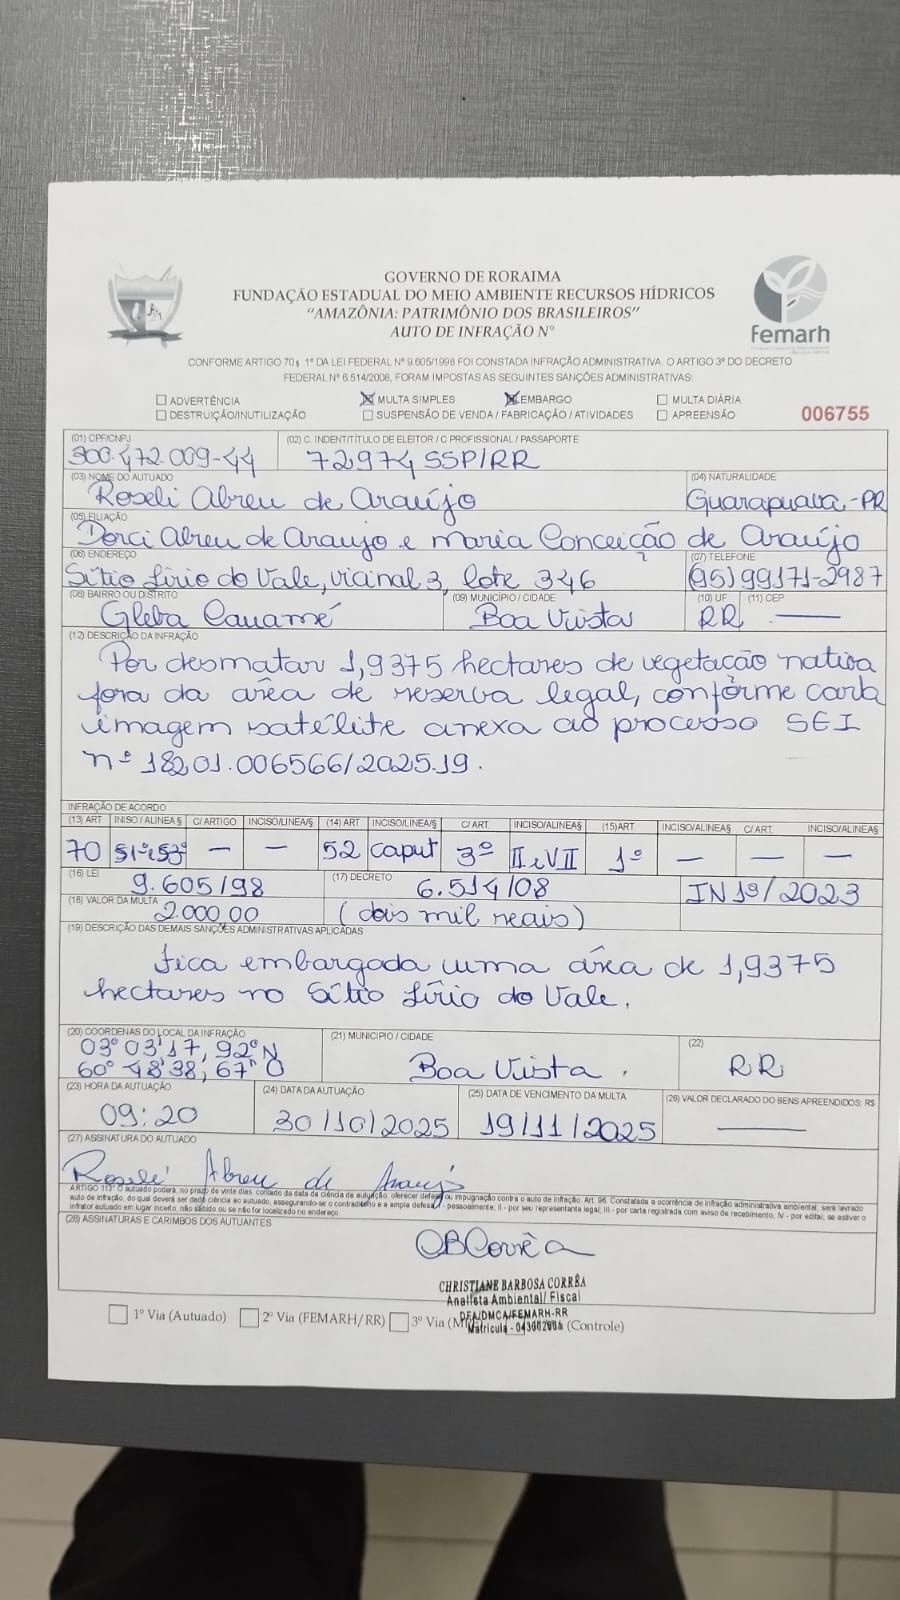 GOVERNO DE RORAIMA
FUNDAÇÃO ESTADUAL DO MEIO AMBIENTE RECURSOS HÍDRICOS
"AMAZÔNIA: PATRIMÔNIO DOS BRASILEIROS"
AUTO DE INFRAÇÃO Nº
femarh
CONFORME ARTIGO 70§ 1º DA LEI FEDERAL Nº 9.605/1998 FOI CONSTADA INFRAÇÃO ADMINISTRATIVA. O ARTIGO 3º DO DECRETO
FEDERAL Nº 6.514/2008, FORAM IMPOSTAS AS SEGUINTES SANÇÕES ADMINISTRATIVAS:
ADVERTÊNCIA MULTA SIMPLES EMBARGO MULTA DIÁRIA
DESTRUIÇÃO/INUTILIZAÇÃO SUSPENSÃO DE VENDA / FABRICAÇÃO / ATIVIDADES APREENSÃO 006755
(01) CPF/CNPJ (02) C. INDENT/TÍTULO DE ELEITOR / C PROFISSIONAL / PASSAPORTE
300.472.009-44 72974 SSP/RR
(03) NOME DO AUTUADO (04) NATURALIDADE
Roseli Abreu de Araújo Guarapuava-PR
(05) FILIAÇÃO
Dorci Abreu de Araujo e Maria Conceição de Araújo
(06) ENDEREÇO (07) TELEFONE
Sítio Lírio do Vale, vicinal 3, lote 346 (95) 99171-2987
(08) BAIRRO OU DISTRITO (09) MUNICÍPIO / CIDADE (10) UF (11) CEP
Gleba Cauamé Boa Vista RR —
(12) DESCRIÇÃO DA INFRAÇÃO
Por desmatar 1,9375 hectares de vegetação nativa
fora da área de reserva legal, confôrme carta
imagem satélite anexa ao processo SEI
nº 18201.006566/2025.19.
INFRAÇÃO DE ACORDO
(13) ART INISO / ALINEA § C/ ARTIGO INCISO/LINEA/§ (14) ART INCISO/LINEA/§ C/ ART INCISO/ALINEA§ (15) ART INCISO/ALINEA§ C/ ART. INCISO/ALINEA§
70 §1º e §3º — — 52 caput 3º II e VII 1º — — —
(16) LEI 9.605/98 (17) DECRETO 6.514/08 IN 19/2023
(18) VALOR DA MULTA 2.000,00 (dois mil reais)
(19) DESCRIÇÃO DAS DEMAIS SANÇÕES ADMINISTRATIVAS APLICADAS
Fica embargada uma área de 1,9375
hectares no Sítio Lírio do Vale.
(20) COORDENAS DO LOCAL DA INFRAÇÃO (21) MUNICIPIO / CIDADE (22)
03º 03'17, 92" N
60º 48'38, 67" O Boa Vista . RR
(23) HORA DA AUTUAÇÃO (24) DATA DA AUTUAÇÃO (25) DATA DE VENCIMENTO DA MULTA (26) VALOR DECLARADO DO BENS APREENDIDOS: R$
09:20 30/10/2025 19/11/2025 —
(27) ASSINATURA DO AUTUADO
Roseli Abreu de Araujo
ARTIGO 113º O autuado poderá, no prazo de vinte dias, contado da data da ciência da autuação, oferecer defesa ou impugnação contra o auto de infração. Art. 96. Constatada a ocorrência de infração administrativa ambiental, será lavrado
auto de infração, do qual deverá ser dado ciência ao autuado, assegurando-se o contraditório e a ampla defesa - pessoalmente; II - por seu representante legal; III - por carta registrada com aviso de recebimento; IV - por edital, se estiver o
infrator autuado em lugar incerto, não sabido ou se não for localizado no endereço.
(28) ASSINATURAS E CARIMBOS DOS AUTUANTES
CBCorrêa
CHRISTIANE BARBOSA CORRÊA
Analista Ambiental/ Fiscal
DFA/DMCA/FEMARH-RR
Matrícula -
1º Via (Autuado) 2º Via (FEMARH/RR) 3º Via (Controle)